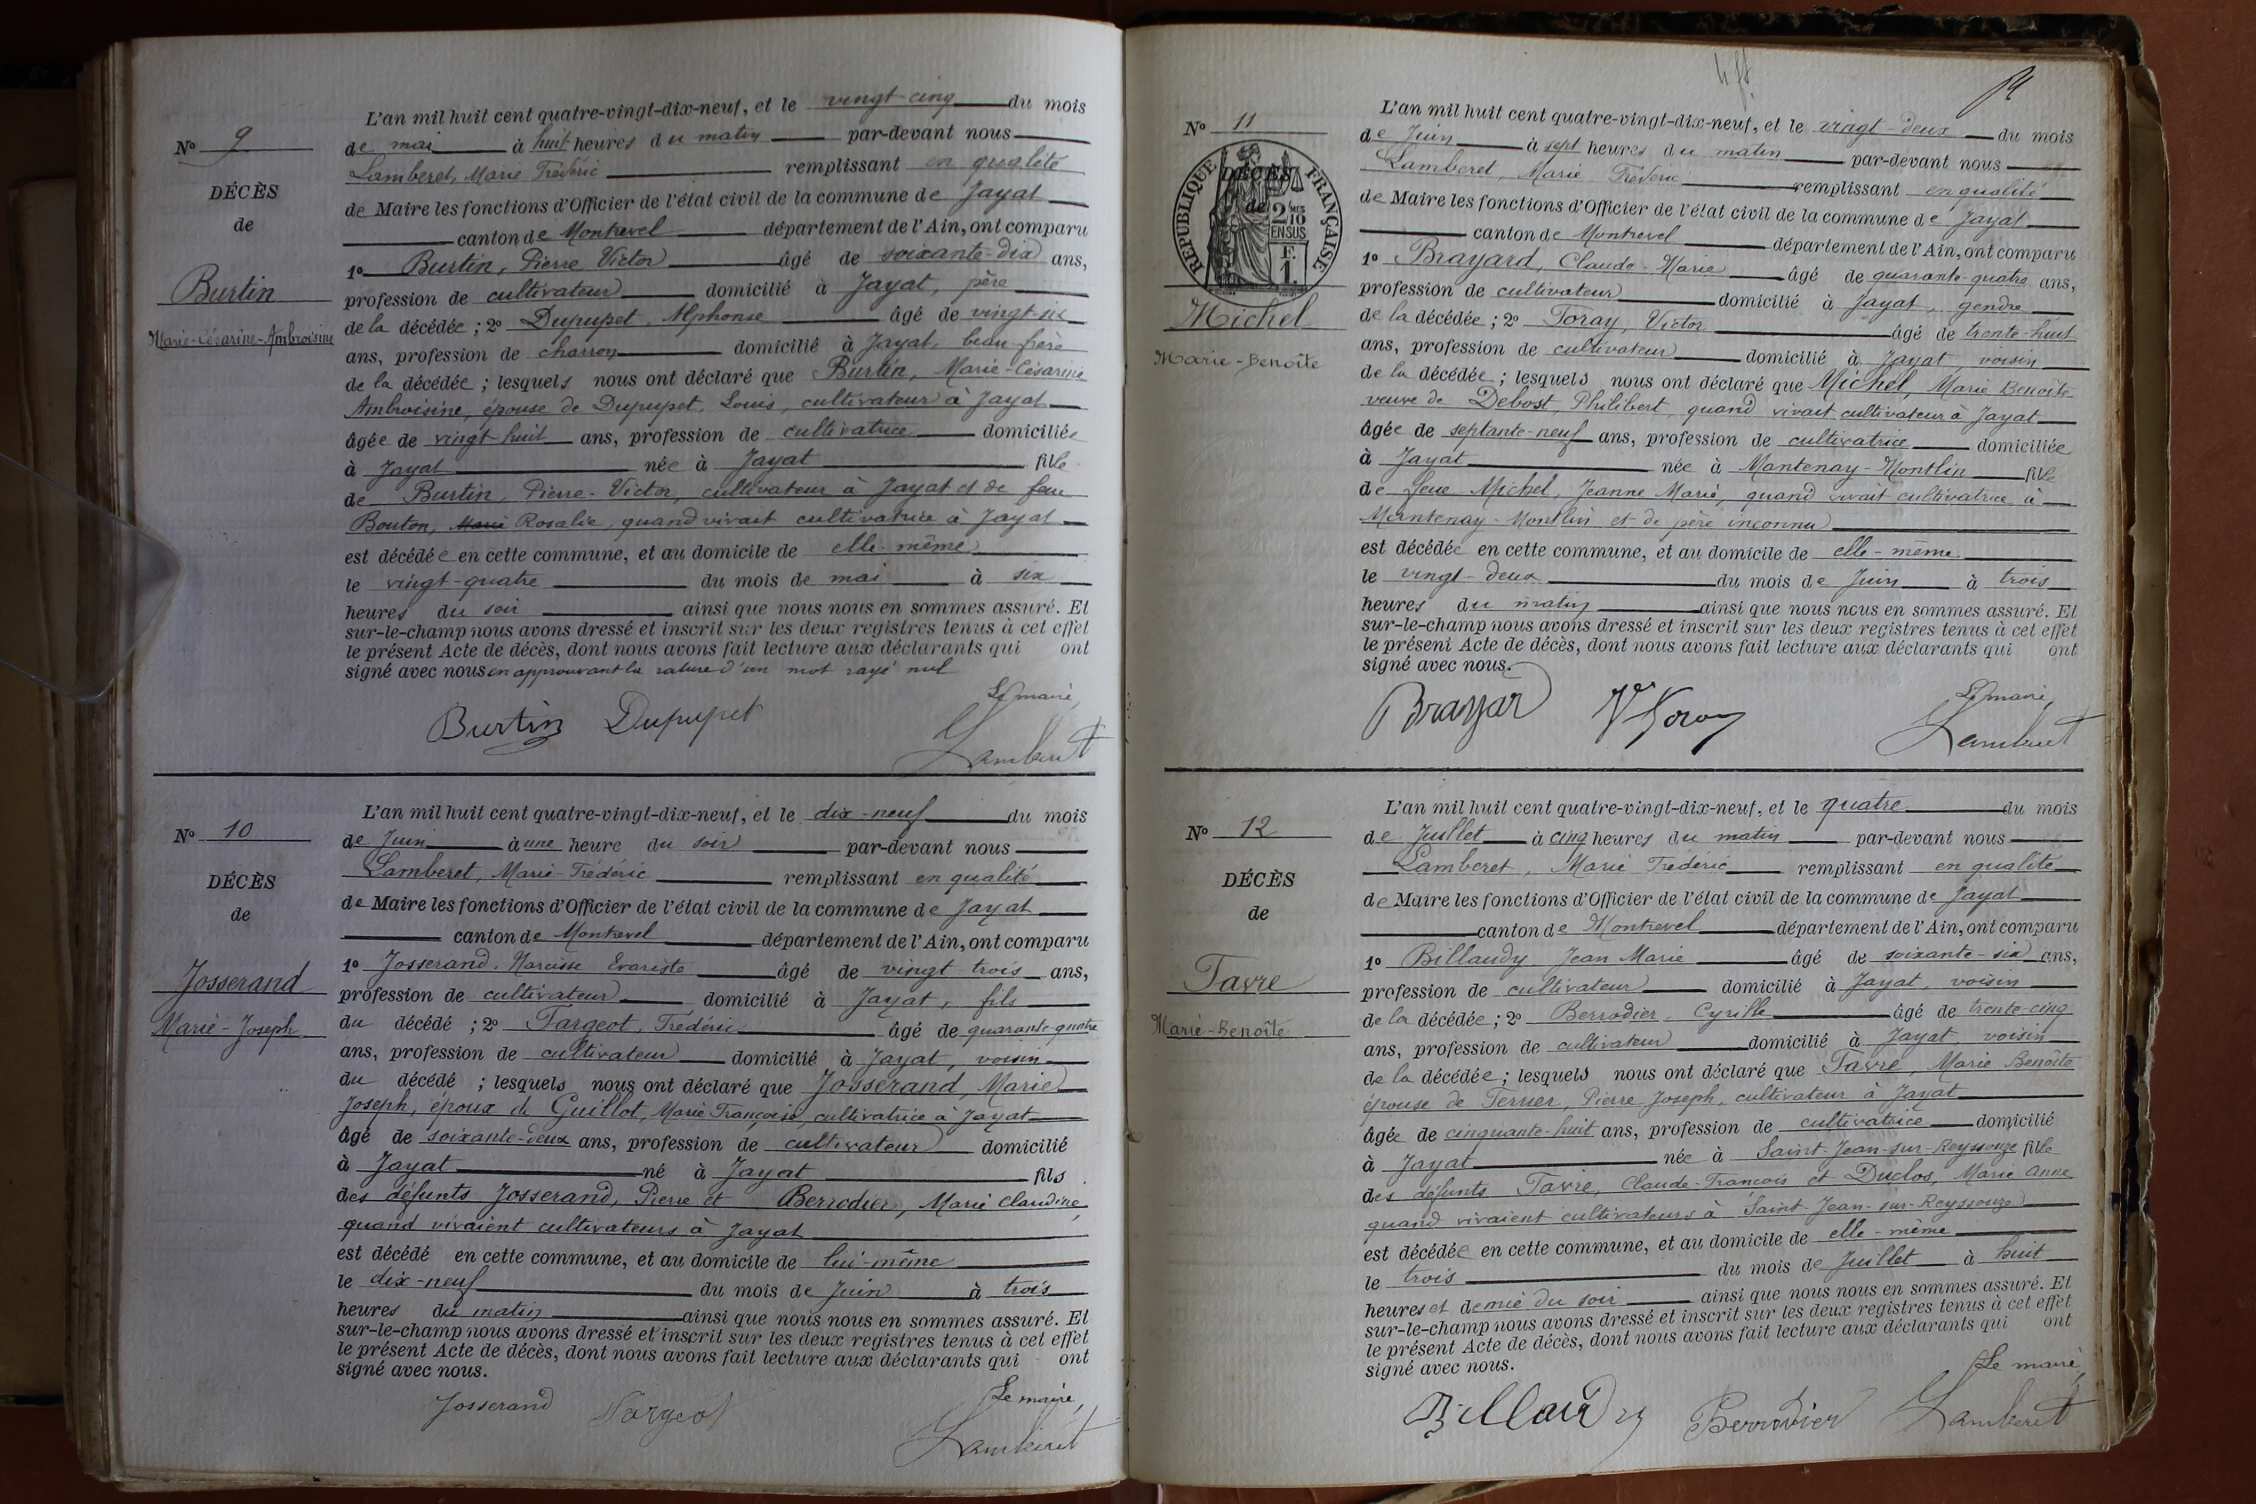 L'an mil huit cent quatre-vingt-dix-neuf, et le vingt-cinq du mois
Nº 9
de mai à huit heures du matin par-devant nous
Lamberet, Marie Frédéric remplissant en qualité
DÉCÈS
de Maire les fonctions d'Officier de l'état civil de la commune de Jayat
de
canton de Montrevel département de l'Ain, ont comparu
1º Burtin, Pierre Victor âgé de soixante-dix ans,
Burtin
profession de cultivateur domicilié à Jayat, père
de la décédée ; 2º Dupupet, Alphonse âgé de vingt-six
Marie-Césarine-Ambroisine
ans, profession de charron domicilié à Jayat, beau-frère
de la décédée ; lesquels nous ont déclaré que Burtin, Marie-Césarine
Ambroisine, épouse de Dupupet, Louis, cultivateur à Jayat
âgée de vingt-huit ans, profession de cultivatrice domiciliée
à Jayat née à Jayat fille
de Burtin, Pierre-Victor, cultivateur à Jayat et de feue
Bouton, Marie Rosalie, quand vivait cultivatrice à Jayat
est décédée en cette commune, et au domicile de elle-même
le vingt-quatre du mois de mai à six
heures du soir ainsi que nous nous en sommes assuré. Et
sur-le-champ nous avons dressé et inscrit sur les deux registres tenus à cet effet
le présent Acte de décès, dont nous avons fait lecture aux déclarants qui ont
signé avec nous en approuvant la rature d'un mot rayé nul
Le maire,
Burtin Dupupet Lamberet
L'an mil huit cent quatre-vingt-dix-neuf, et le dix-neuf du mois
Nº 10
de Juin à une heure du soir par-devant nous
Lamberet, Marie-Frédéric remplissant en qualité
DÉCÈS
de Maire les fonctions d'Officier de l'état civil de la commune de Jayat
de
canton de Montrevel département de l'Ain, ont comparu
1º Josserand, Narcisse Evariste âgé de vingt-trois ans,
Josserand
profession de cultivateur domicilié à Jayat, fils
du décédé ; 2º Fargeot, Frédéric âgé de quarante-quatre
Marie-Joseph
ans, profession de cultivateur domicilié à Jayat, voisin
du décédé ; lesquels nous ont déclaré que Josserand, Marie
Joseph, époux de Guillot, Marie Françoise, cultivatrice à Jayat
âgé de soixante-deux ans, profession de cultivateur domicilié
à Jayat né à Jayat fils
des défunts Josserand, Pierre et Berrodier, Marie Claudine,
quand vivaient cultivateurs à Jayat
est décédé en cette commune, et au domicile de lui-même
le dix-neuf du mois de Juin à trois
heures du matin ainsi que nous nous en sommes assuré. Et
sur-le-champ nous avons dressé et inscrit sur les deux registres tenus à cet effet
le présent Acte de décès, dont nous avons fait lecture aux déclarants qui ont
signé avec nous.
Le maire,
Josserand Fargeot Lamberet
L'an mil huit cent quatre-vingt-dix-neuf, et le vingt-deux du mois
Nº 11
de Juin à sept heures du matin par-devant nous
Lamberet, Marie Frédéric remplissant en qualité
RÉPUBLIQUE FRANÇAISE
DÉCÈS
de
2/10 EN SUS
F. 1.
de Maire les fonctions d'Officier de l'état civil de la commune de Jayat
canton de Montrevel département de l'Ain, ont comparu
1º Brayard, Claude-Marie âgé de quarante-quatre ans,
profession de cultivateur domicilié à Jayat, gendre
Michel
de la décédée ; 2º Foray, Victor âgé de trente-huit
Marie-Benoîte
ans, profession de cultivateur domicilié à Jayat voisin
de la décédée ; lesquels nous ont déclaré que Michel, Marie Benoîte
veuve de Debost, Philibert, quand vivait cultivateur à Jayat
âgée de septante-neuf ans, profession de cultivatrice domiciliée
à Jayat née à Mantenay-Montlin fille
de feue Michel, Jeanne Marie, quand vivait cultivatrice à
Mantenay-Montlin et de père inconnu
est décédée en cette commune, et au domicile de elle-même
le vingt-deux du mois de Juin à trois
heures du matin ainsi que nous nous en sommes assuré. Et
sur-le-champ nous avons dressé et inscrit sur les deux registres tenus à cet effet
le présent Acte de décès, dont nous avons fait lecture aux déclarants qui ont
signé avec nous.
Le maire,
Brayar Vor Foray Lamberet
L'an mil huit cent quatre-vingt-dix-neuf, et le quatre du mois
Nº 12
de Juillet à cinq heures du matin par-devant nous
Lamberet, Marie Frédéric remplissant en qualité
DÉCÈS
de Maire les fonctions d'Officier de l'état civil de la commune de Jayat
de
canton de Montrevel département de l'Ain, ont comparu
1º Billaudy Jean Marie âgé de soixante-six ans,
Favre
profession de cultivateur domicilié à Jayat, voisin
de la décédée ; 2º Berrodier, Cyrille âgé de trente-cinq
Marie-Benoîte
ans, profession de cultivateur domicilié à Jayat, voisin
de la décédée ; lesquels nous ont déclaré que Favre, Marie Benoîte
épouse de Perrier, Pierre Joseph, cultivateur à Jayat
âgée de cinquante-huit ans, profession de cultivatrice domicilié
à Jayat née à Saint-Jean-sur-Reyssouze fille
des défunts Favre, Claude-François et Duclos, Marie Anne
quand vivaient cultivateurs à Saint-Jean-sur-Reyssouze
est décédée en cette commune, et au domicile de elle-même
le trois du mois de Juillet à huit
heures et demie du soir ainsi que nous nous en sommes assuré. Et
sur-le-champ nous avons dressé et inscrit sur les deux registres tenus à cet effet
le présent Acte de décès, dont nous avons fait lecture aux déclarants qui ont
signé avec nous.
Le maire,
Billaudy Berrodier Lamberet